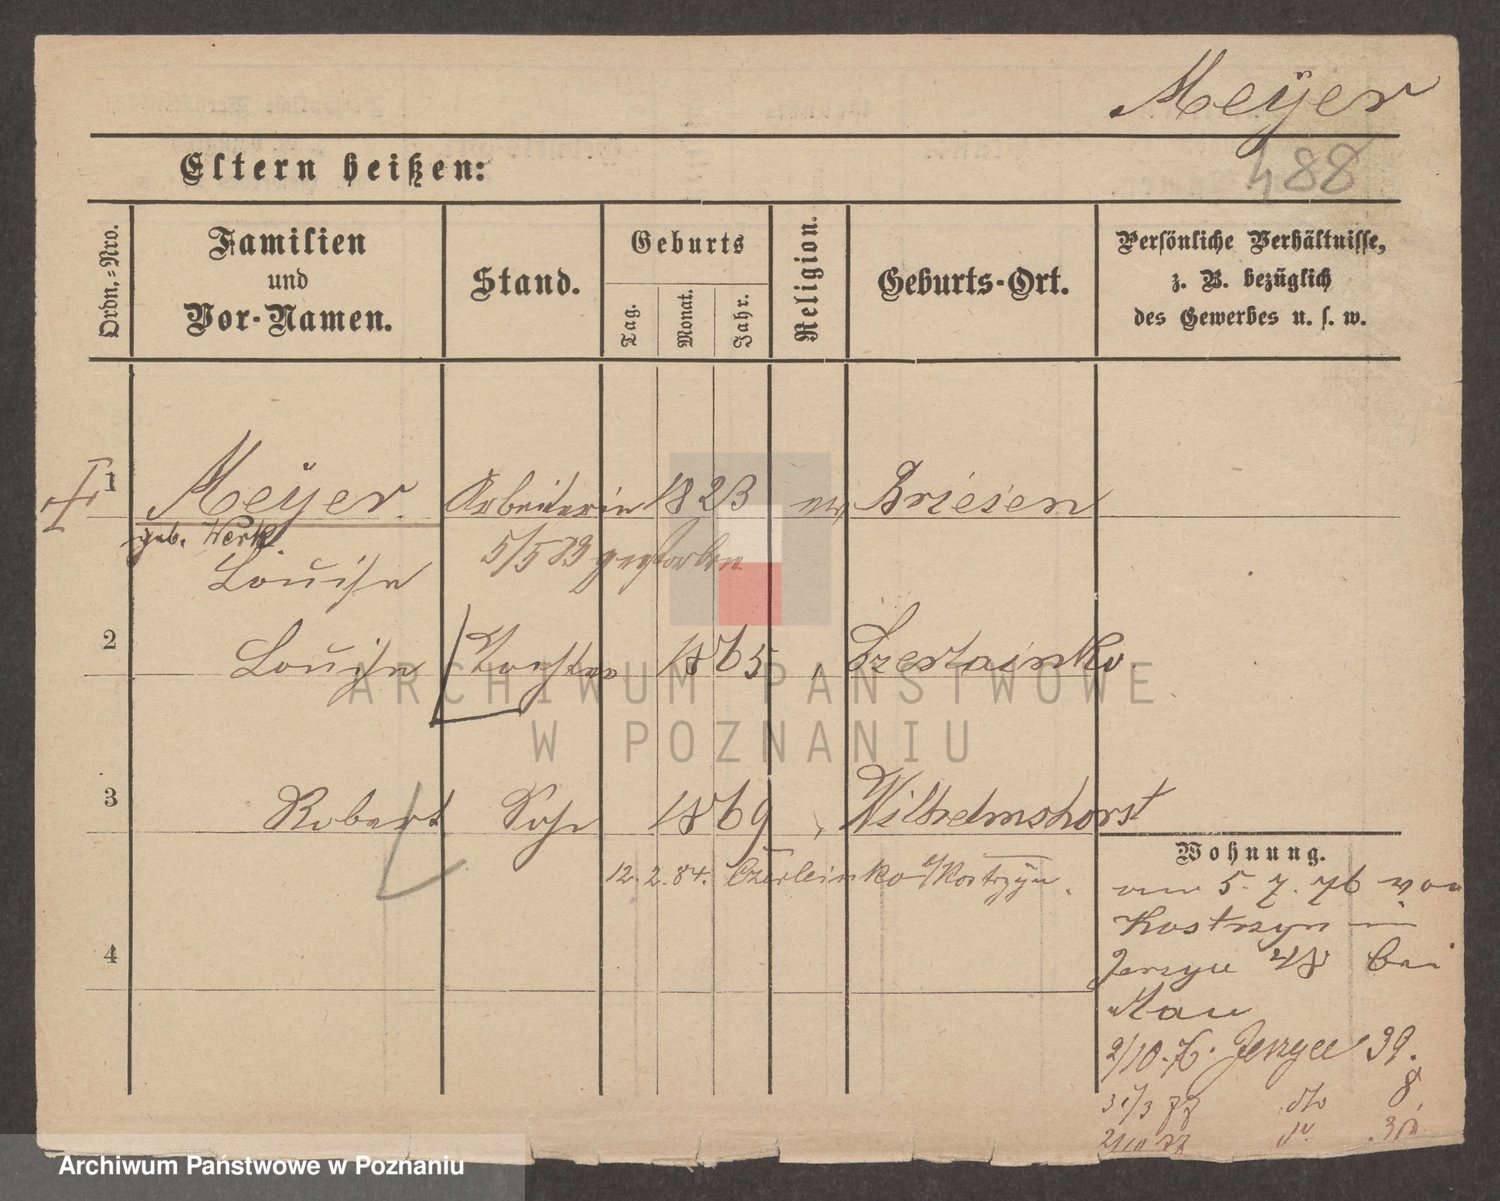 Meyer
488
Eltern heißen:
Ordn.-Nro.
Familien
und
Vor-Namen.
Stand.
Geburts
Tag.
Monat.
Jahr.
Religion.
Geburts-Ort.
Persönliche Verhältnisse,
z. B. bezüglich
des Gewerbes u. s. w.
1 Meyer Arbeiterin 1823 ev Briesen
geb. Werk
5/5 83 gestorben
Louise
2 Louise Tochter 1865
3 Robert Sohn 1869 Wilhelmshorst
12.2.84. Kostrzyn
Wohnung.
vom 5.7.76 von
Kostrzyn in
Jerzyce 48 bei
2/10.76. Jerzyce 39.
31/3 77 dto 8
2/10 77
4
ARCHIWUM PAŃSTWOWE
W POZNANIU
Archiwum Państwowe w Poznaniu